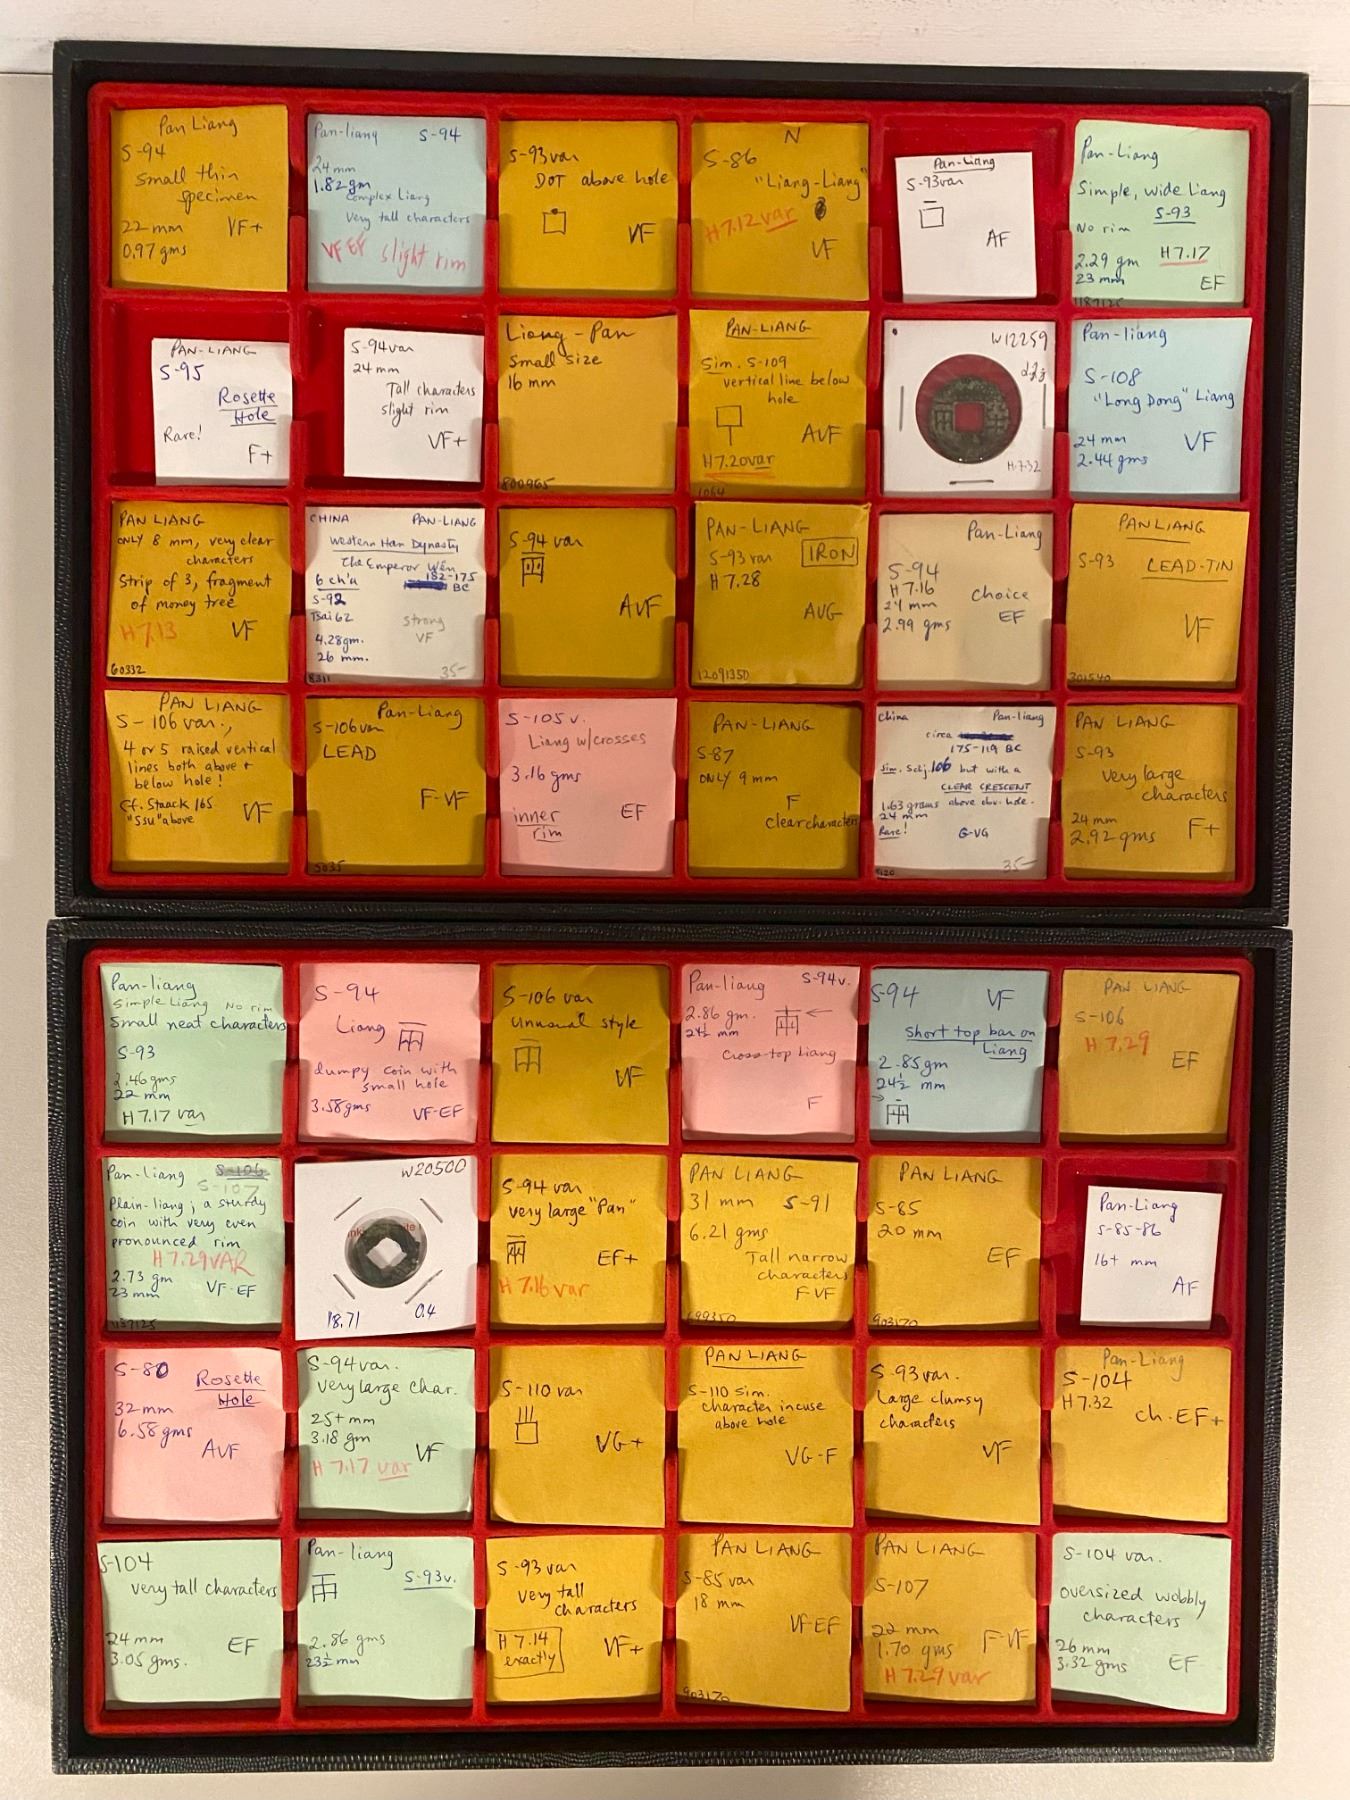 Pan Liang
S-94
small thin
specimen
22 mm VF+
0.97 gms
Pan-liang S-94
24 mm
1.82 gm
Complex Liang
Very tall characters
VF EF slight rim
S-93 var
DOT above hole
VF
N
S-86
"Liang-Liang"
H7.12 var
VF
Pan-Liang
S-93var
AF
Pan-Liang
Simple, wide Liang
S-93
No rim
2.29 gm H7.17
23 mm
EF
1187125
PAN-LIANG
S-95
Rosette
Hole
Rare!
F+
S-94var
24 mm
Tall characters
slight rim
VF+
Liang-Pan
Small size
16 mm
800965
PAN-LIANG
Sim. S-109
vertical line below
hole
AVF
H7.20var
1064
W12259
H.7.32
Pan-liang
S-108
"Long Dong" Liang
24 mm VF
2.44 gms
PAN LIANG
ONLY 8 mm, very clear
characters
Strip of 3, fragment
of money tree
H7.13 VF
60332
CHINA PAN-LIANG
Western Han Dynasty
The Emperor Wên
6 ch'u 182-175
BC
S-92
Tsai 62
strong
VF
4.28gm.
26 mm.
8311 35-
S-94 var
AVF
PAN-LIANG
S-93 var IRON
H7.28
AVG
12091350
Pan-Liang
S-94
H7.16
24 mm choice
2.99 gms EF
PAN LIANG
S-93 LEAD-TIN
VF
301540
PAN LIANG
S-106 var.,
4 or 5 raised vertical
lines both above +
below hole!
Cf. Staack 165
"Ssu" above VF
Pan-Liang
S-106var
LEAD
F-VF
5035
S-105 v.
Liang w/crosses
3.16 gms
inner EF
rim
PAN-LIANG
S-87
ONLY 9 mm
F
clear characters
China Pan-liang
circa
175-119 BC
Sim. Schj. 106 but with a
CLEAR CRESCENT
1.63 grams above obv. hole.
24 mm
Rare! G-VG
35-
PAN LIANG
S-93
very large
characters
24 mm
2.92 gms F+
Pan-liang
Simple Liang No rim
Small neat characters
S-93
2.46gms
22 mm
H7.17 var
S-94
Liang
dumpy coin with
small hole
3.58gms VF-EF
S-106 var
unusual style
VF
Pan-liang S-94v.
2.86 gm.
24½ mm
Cross-top Liang
F
S-94 VF
Short top bar on
Liang
2.85gm
24½ mm
PAN LIANG
S-106
H 7.29
EF
Pan-liang
S-107
Plain-liang; a sturdy
coin with very even
pronounced rim
H7.29VAR
2.73 gm VF-EF
23mm
1187125
W20500
18.71 0.4
S-94 var
very large "Pan"
EF+
H 7.16 var
PAN LIANG
31 mm S-91
6.21 gms
Tall narrow
characters
F-VF
699350
PAN LIANG
S-85
20 mm
EF
903170
Pan-Liang
S-85-86
16+ mm
AF
S-80 Rosette
Hole
32 mm
6.58gms
AVF
S-94 var.
very large char.
25+ mm
3.18 gm
VF
H 7.17 var
S-110 var
VG+
PAN LIANG
S-110 sim.
character incuse
above hole
VG-F
S-93 var.
Large clumsy
characters
VF
Pan-Liang
S-104
H7.32
ch. EF+
S-104
very tall characters
24mm EF
3.05 gms.
Pan-liang
S-93v.
2.86 gms
23½ mm
S-93 var
very tall
characters
H 7.14
exactly VF+
PAN LIANG
S-85 var
18 mm
VF-EF
903170
PAN LIANG
S-107
22 mm
1.70 gms F-VF
H7.29 var
S-104 var.
oversized wobbly
characters
26 mm
3.32 gms EF